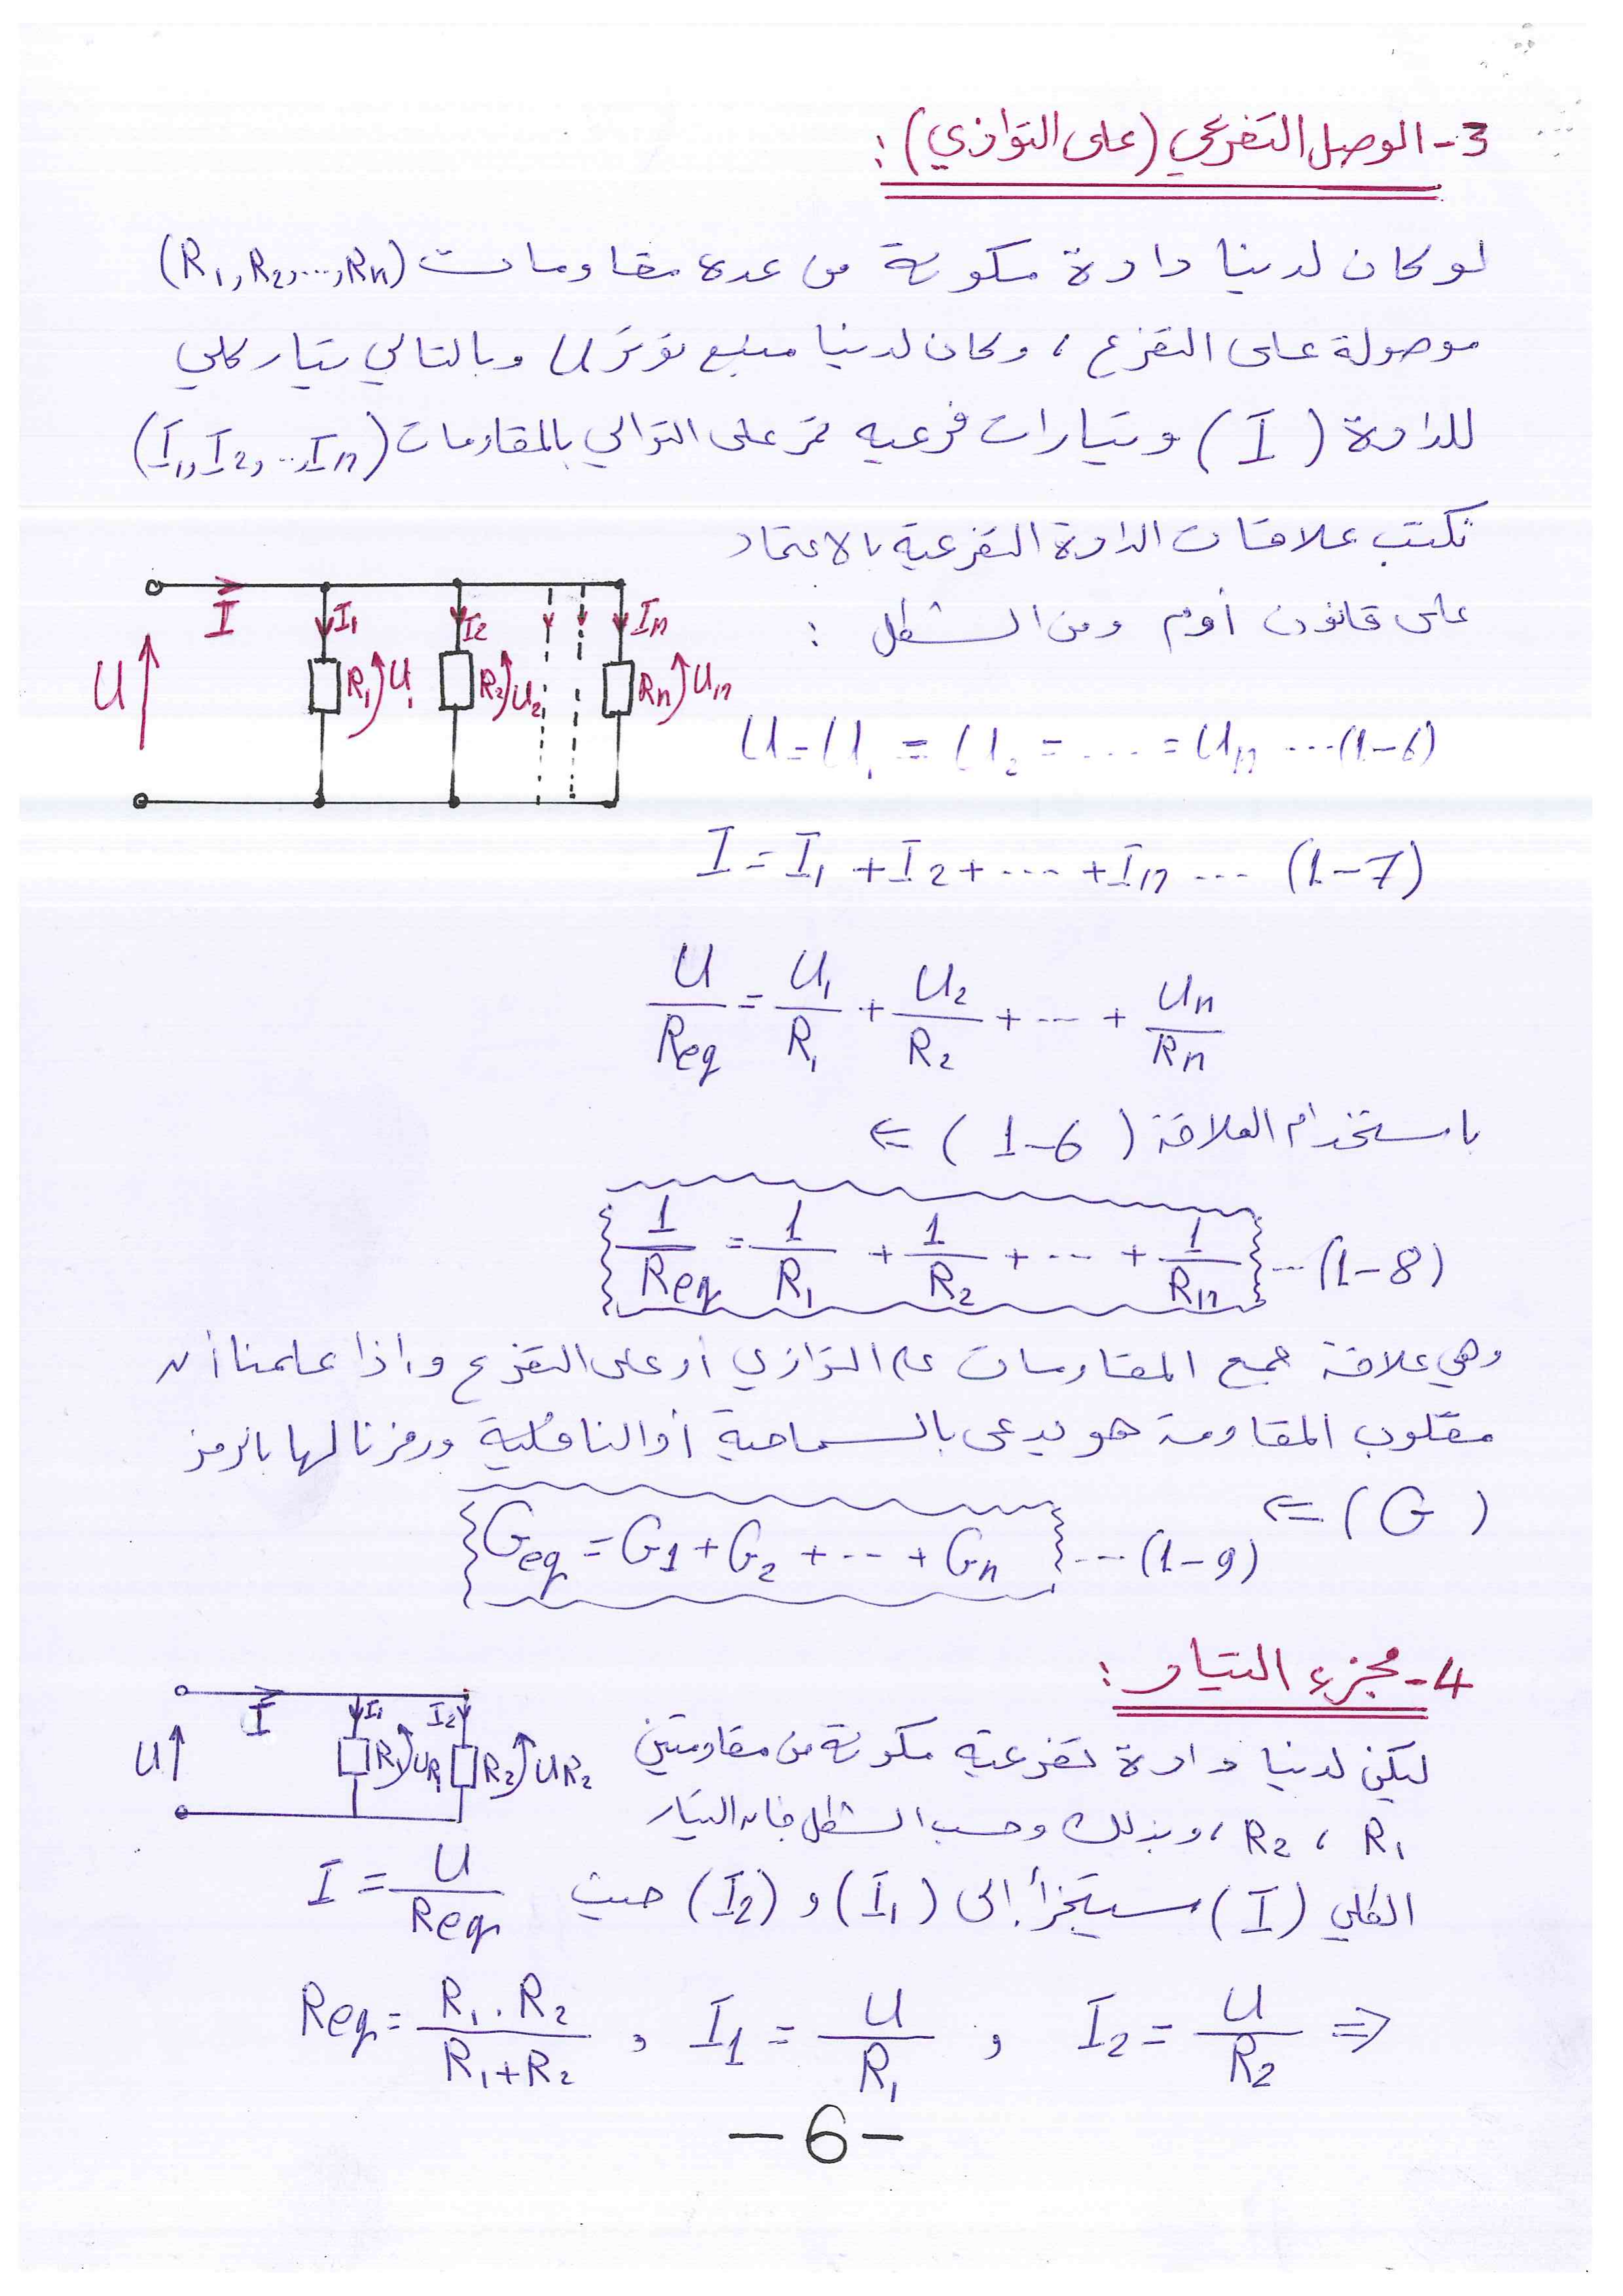 3- الوصل التفرعي (على التوازي):
لو كان لدينا دارة مكونة من عدة مقاومات (R1, R2, ..., Rn)
موصولة على التفرع ، وكان لدينا منبع توتر U وبالتالي تيار كلي
للدارة (I) وتيارات فرعيه تمر على التوالي بالمقاومات (I1, I2, ..., In)
نكتب علاقات الدارة التفرعية بالاعتماد
على قانون أوم ومن الشكل :
I I1 I2 In
U R1 U1 R2 U2 Rn Un
U = U1 = U2 = .... = Un ...(1-6)
I = I1 + I2 + .... + In ... (1-7)
U/Req = U1/R1 + U2/R2 + ... + Un/Rn
باستخدام العلاقة (1-6) ⇐
1/Req = 1/R1 + 1/R2 + ... + 1/Rn ...(1-8)
وهي علاقة جمع المقاومات على التوازي أو على التفرع وإذا علمنا أن
مقلوب المقاومة هو يدعى بالسماحية أو الناقلية ورمزنا لها بالرمز
(G) ⇐
Geq = G1 + G2 + ... + Gn ...(1-9)
4- مجزء التيار:
I I1 I2
U R1 UR1 R2 UR2
ليكن لدينا دارة تفرعية مكونة من مقاومتين
R1 ، R2 ، وبذلك وحسب الشكل فإن التيار
الكلي (I) سيتجزأ إلى (I1) و (I2) حيث I = U/Req
Req = R1.R2/R1+R2 , I1 = U/R1 , I2 = U/R2 ⇒
-6-